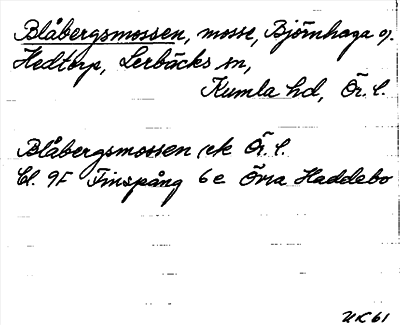 Blåbergsmossen, mosse, Björnhaga o.
Hedtorp, Lerbäcks sn,
Kumla hd, Ör. l.
Blåbergsmossen ek Ör. l.
Bl. 9F Finspång 6e Övra Haddebo
UK 61